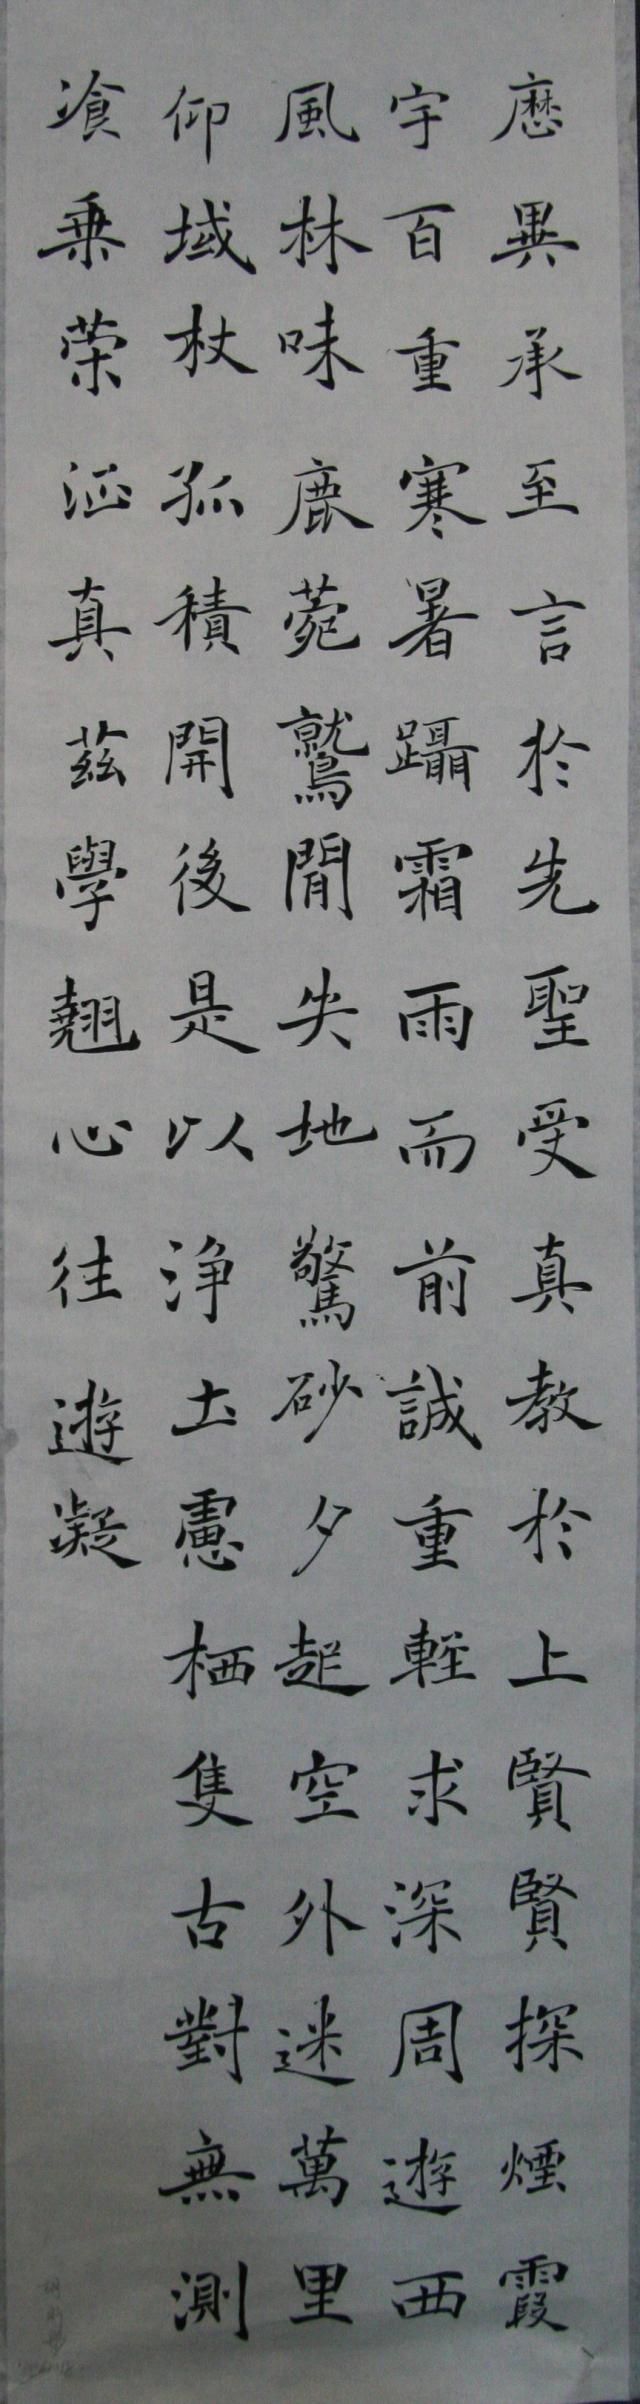 歷異承至言於先聖受真教於上賢賢探煙霞
宇百重寒暑躡霜雨而前誠重輕求深周遊西
風林味鹿菀鷲閒失地驚砂夕起空外迷萬里
仰域杖孤積開後是以淨土慮栖隻古對無測
飡乘荣涯真茲學翹心往遊凝